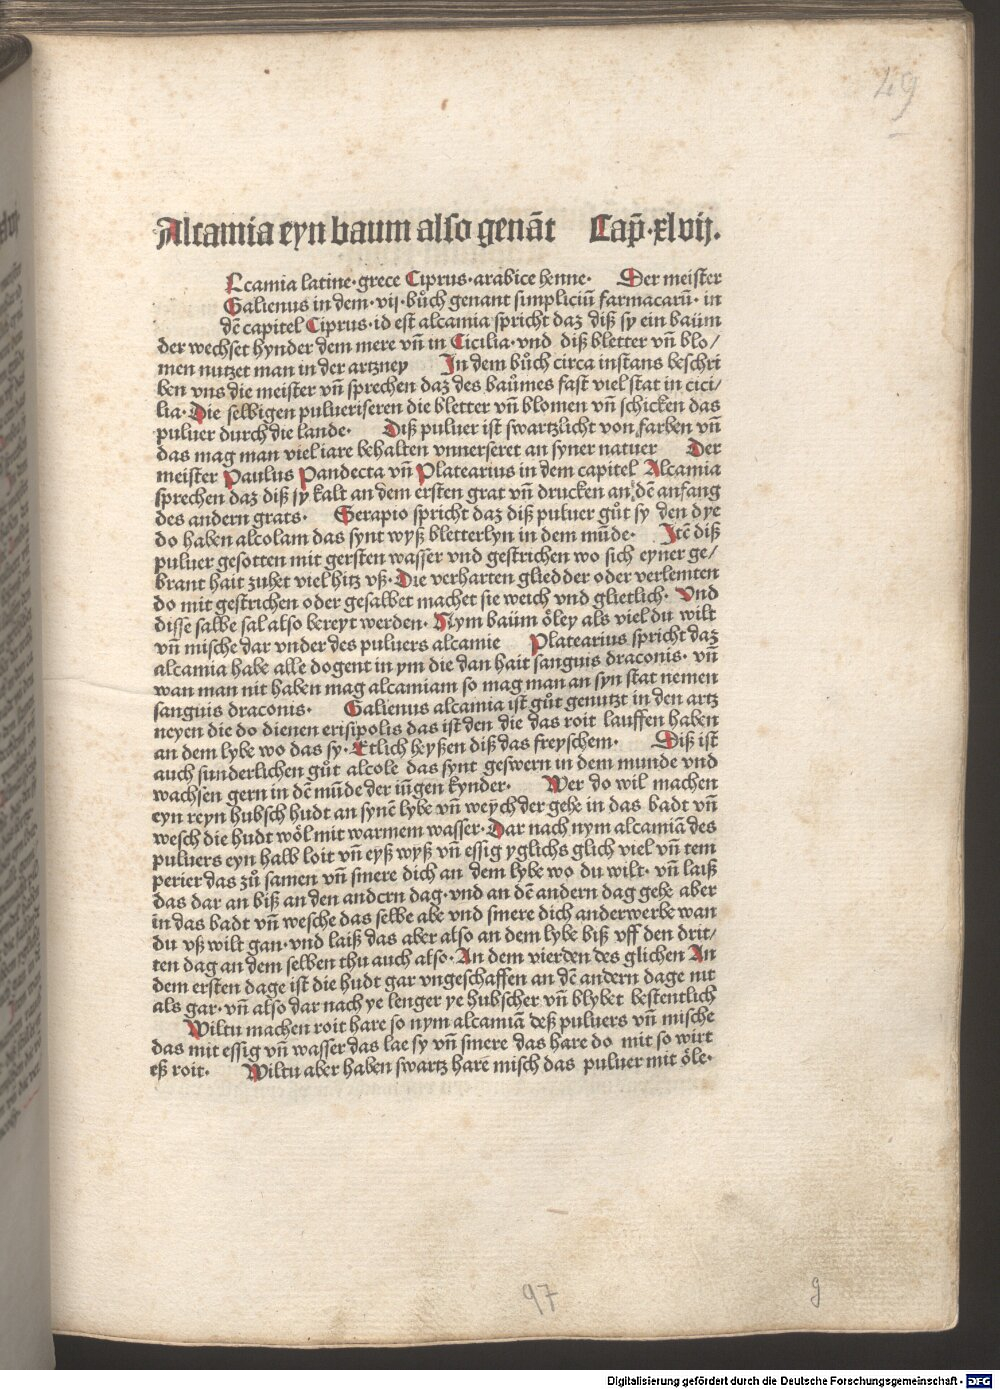 49
Alcamia eyn baum also genãt Cap̃·xlvij.
Lcamia latine·grece Ciprus·arabice henne· Der meister
Galienus in dem·vij·bůch genant simpliciũ farmacarũ·in
dẽ capitel Ciprus·id est alcamia spricht daz diß sy ein baüm
der wechset hynder dem mere vñ in Cicilia·vnd diß bletter vñ blo/
men nutzet man in der artzney In dem bůch circa instans beschri
ben vns die meister vñ sprechen daz des baůmes fast viel stat in cici/
lia·Die selbigen pulueriseren die bletter vñ blomen vñ schicken das
puluer durch die lande· Diß puluer ist swartzlicht von farben vñ
das mag man viel iare behalten vnuerseret an syner natuer Der
meister Paulus Pandecta vñ Platearius in dem capitel Alcamia
sprechen daz diß sy kalt an dem ersten grat vñ drucken an dẽ anfang
des andern grats· Serapio spricht daz diß puluer gůt sy den dye
do haben alcolam das synt wyß bletterlyn in dem mũde· Itẽ diß
puluer gesotten mit gersten wasser vnd gestrichen wo sich eyner ge/
brant hait zuhet viel hitz vß·Die verharten glied der oder verlemten
do mit gestrichen oder gesalbet machet sie weich vnd glietlich· Vnd
disse salbe sal also bereyt werden·Nym baüm öley als viel du wilt
vñ mische dar vnder des puluers alcamie Platearius spricht daz
alcamia habe alle dogent in ym die dan hait sanguis draconis· vñ
wan man nit haben mag alcamiam so mag man an syn stat nemen
sanguis draconis· Galienus alcamia ist gůt genutzt in den artz
neyen die do dienen erisipolis das ist den die das roit lauffen haben
an dem lybe wo das sy·Etlich heyßen diß das freyschem· Diß ist
auch sunderlichen gůt alcole das synt geswern in dem munde vnd
wachsen gern in dẽ mũde der iũgen kynder· Wer do wil machen
eyn reyn hubsch hudt an synẽ lybe vñ weych der gehe in das badt vñ
wesch die hudt wöl mit warmem wasser·Dar nach nym alcamiã des
puluers eyn halb loit vñ eyß wyß vñ essig yglichs glich viel vñ tem
perier das zů samen vñ smere dich an dem lybe wo du wilt· vñ laiß
das dar an biß an den andern dag·vnd an dẽ andern dag gehe aber
in das badt vñ wesche das selbe abe vnd smere dich anderwerbe wan
du vß wilt gan·vnd laiß das aber also an dem lybe biß vff den drit/
ten dag an dem selben thu auch also·An dem vierden des glichen An
dem ersten dage ist die hudt gar vngeschaffen an dẽ andern dage nit
als gar·vñ also dar nach ye lenger ye hubscher vñ blybet bestentlich
Wiltu machen roit hare so nym alcamiã deß puluers vñ mische
das mit essig vñ wasser das lae sy vñ smere das hare do mit so wirt
eß roit· Wiltu aber haben swartz hare misch das puluer mit öle·
97
g
Digitalisierung gefördert durch die Deutsche Forschungsgemeinschaft - DFG